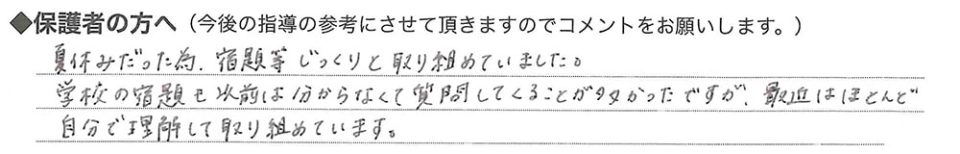 ◆保護者の方へ（今後の指導の参考にさせて頂きますのでコメントをお願いします。）
夏休みだった為、宿題等じっくりと取り組めていました。
学校の宿題も以前は分からなくて質問してくることが多かったですが、最近はほとんど
自分で理解して取り組めています。